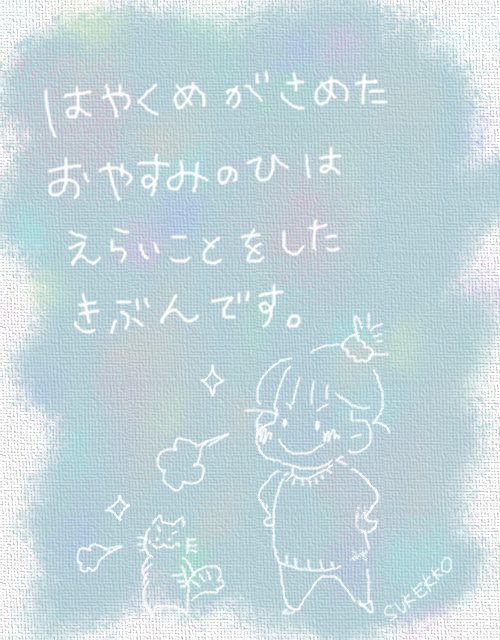 はやくめがさめた
おやすみのひは
えらいことをした
きぶんです。
SUKEKKO